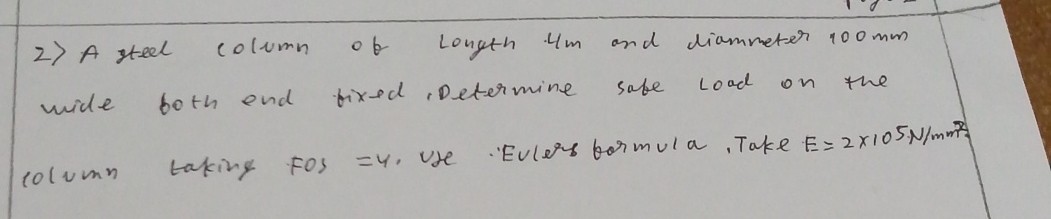 2> A steel column of Length 4m and diammeter 100mm
wide both end fixed, Determine safe Load on the
column taking FOS =4. Use Eulers formula, Take E= 2x105N/mm²